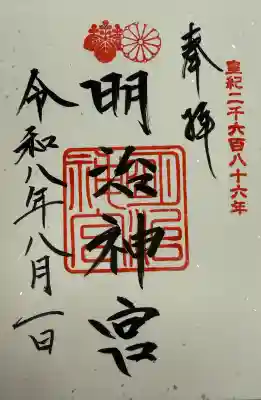 皇紀二千六百八十六年
奉拝
明治神宮
明治神宮
令和八年八月一日